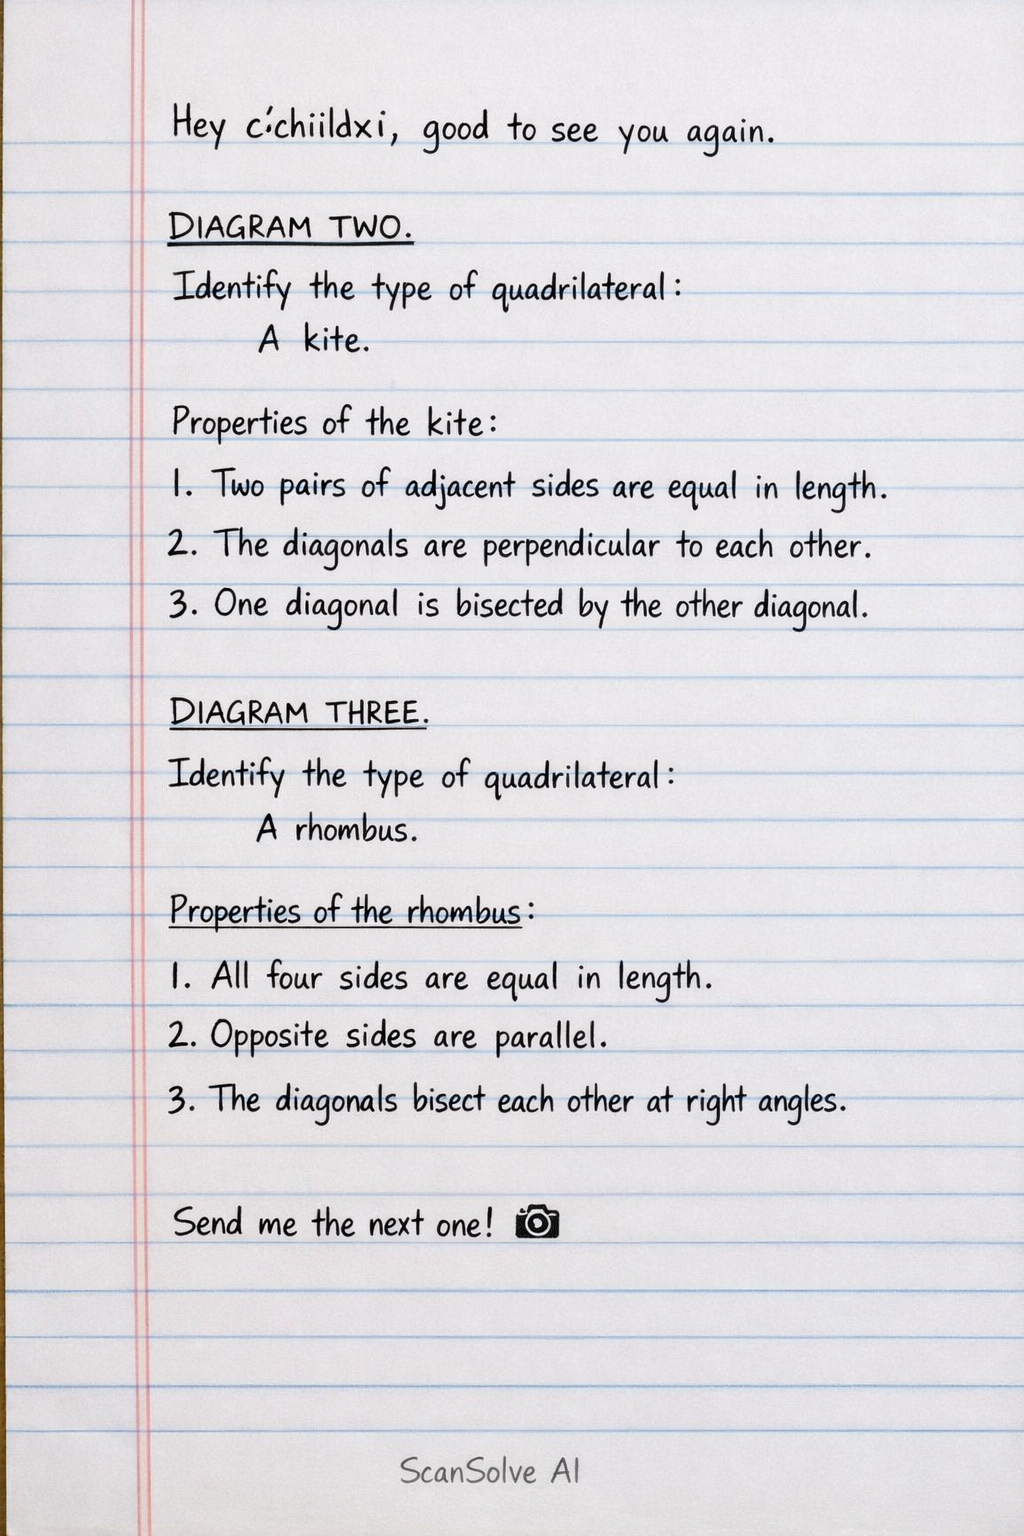 Hey c´chiildxi, good to see you again.
DIAGRAM TWO.
Identify the type of quadrilateral:
A kite.
Properties of the kite:
1. Two pairs of adjacent sides are equal in length.
2. The diagonals are perpendicular to each other.
3. One diagonal is bisected by the other diagonal.
DIAGRAM THREE.
Identify the type of quadrilateral:
A rhombus.
Properties of the rhombus:
1. All four sides are equal in length.
2. Opposite sides are parallel.
3. The diagonals bisect each other at right angles.
Send me the next one! 📷
ScanSolve AI